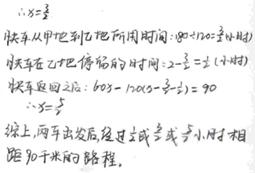 ∴x=3/2
快车从甲地到乙地所用时间:180÷120=3/2(小时)
快车在乙地停留的时间:2-3/2=1/2(小时)
快车返回之后:60x-120(x-3/2-1/2)=90
∴x=5/2
综上,两车出发后,经过1/2或3/2或5/2小时相
距90千米的路程。